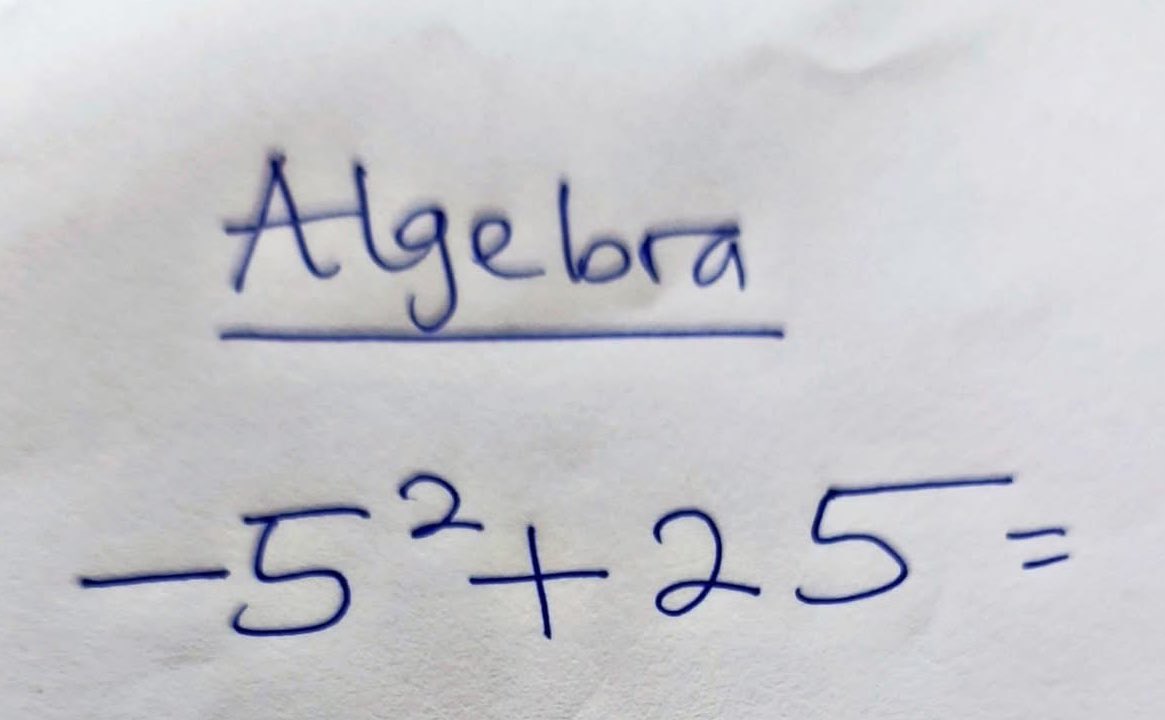 Algebra
-5²+25=